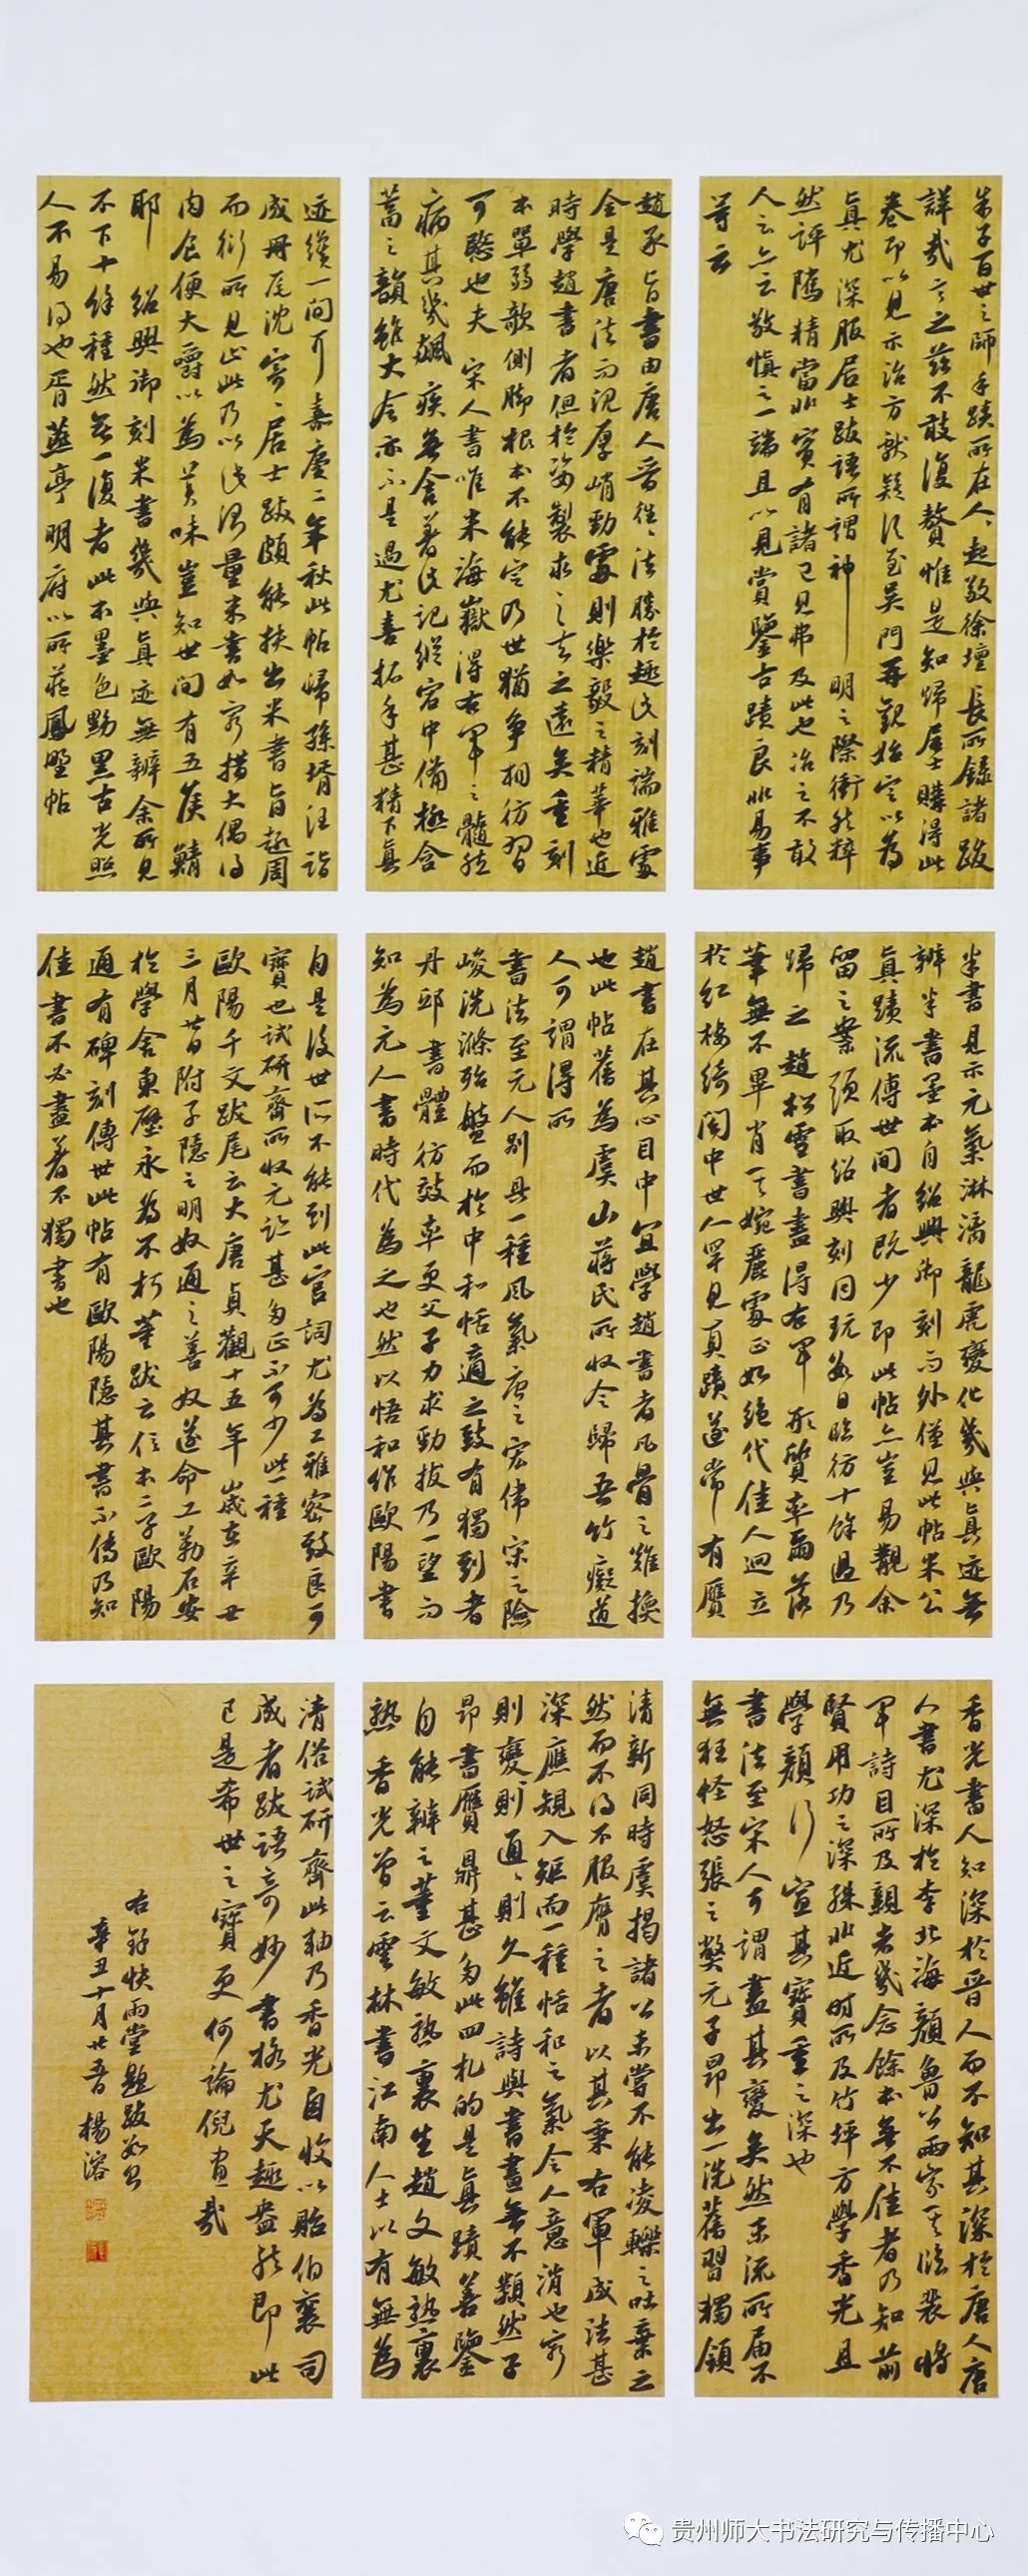 朱子百世之師手蹟所在人人起敬徐壇長所錄諸跋
詳哉言之茲不敢復贅惟是知歸居士購得此
卷即以見示治方就疑後至吳門再觀始定以為
真尤深服居士跋語所謂神明之際衝然粹
然評隲精當非實有諸己見弗及此也治之不敢
人云亦云敬慎之一端且以見賞鑒古蹟良非易事
等云
趙承旨書由唐人晉往往法勝於趣此刻端雅處
全是唐法而渾厚峭勁處則樂毅之精華也近
時學趙書者但於姿製求之去之遠矣重刻
本單弱欹側腳根本不能定乃世猶爭相仿習
可愍也夫 宋人書唯米海嶽得右軍之髓然
病其幾飆疾無含著後記縱宕中備極含
蓄之韻雖大令亦不是過尤喜拓手甚精下真
迹纔一間耳 嘉慶二年秋此帖歸孫壻汪詣
成冊尾沈寄寄居士跋頗能扶出米書旨趣周
而衍所見止此乃以淺淂量米書如窮措大偶得
肉食便大嚼以為美味豈知世間有五侯鯖
耶 紹興御刻米書幾與真迹無辨余所見
不下十餘種然無一復者此本墨色黝黑古光照
人不易得也胥燕亭明府以所藏鳳墅帖
米書見示元氣淋漓龍虎變化幾與真迹無
辨米書墨本自紹興御刻而外僅見此帖米公
真蹟流傳世間者既少即此帖亦豈易覯余
留之案頭取紹興刻同玩每日臨仿十餘過乃
歸之 趙松雪書盡得右軍形質率爾落
筆無不畢肖其婉麗處正如絕代佳人迥立
於紅樓綺閣中世人罕見真蹟遂常有贗
趙書在其心目中宜學趙書者凡骨之難換
也此帖舊為虞山蔣氏所收今歸吾竹癡道
人可謂得所
書法至元人別具一種風氣唐之宏偉宋之險
峻洗滌殆盡而於中和恬適之致有獨到者
丹邱書體仿效率更父子力求勁拔乃一望而
知為元人書時代為之也然以悟和作歐陽書
自是後世所不能到此官詞尤為工雅密致良可
寶也試研齋所收元跡甚多正不可少此一種
歐陽千文跋尾云大唐貞觀十五年歲在辛丑
三月廿日附子隱之明奴通之善奴遂命工勒石安
於學舍東壁永為不朽董跋云信本二子歐陽
通有碑刻傳世此帖有歐陽隱其書不傳乃知
佳書不必盡著不獨書也
香光書人知深於晉人而不知其深於唐人唐
人書尤深於李北海顏魯公兩家其臨裴將
軍詩目所及親者幾念餘本無不佳者乃知前
賢用功之深殊非近時所及竹坪方學香光且
學顏行宜其寶重之深也
書法至宋人可謂盡其變矣然末流所屆不
無狂怪怒張之獘元子昂出一洗舊習獨領
清新同時虞揭諸公未嘗不能凌轢之吐棄之
然而不得不服膺之者以其秉右軍成法甚
深應規入矩而一種恬和之氣令人意消也窮
則變變則通通則久雖詩與書畫無不類然子
昂書贗鼎甚多此四札的是真蹟善鑒
自能辨之董文敏熟裏生趙文敏熟裏
熟香光曾云雲林書江南人士以有無為
清俗試研齋此軸乃香光自收以貽伯襄司
成者跋語奇妙書格尤天趣盎然即此
已是希世之寶更何論倪畫哉
右錄快雨堂題跋數則
辛丑十月廿六日 楊溶
贵州师大书法研究与传播中心